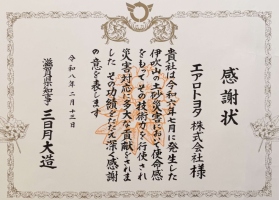 感謝状
エアロトヨタ株式会社様
貴社は令和六年七月に発生した
伊吹山の土砂災害において使命感
をもってその技術力を行使され
災害対応に多大な貢献をされま
した その功績をたたえ深く感謝
の意を表します
令和八年二月十三日
滋賀県知事 三日月大造